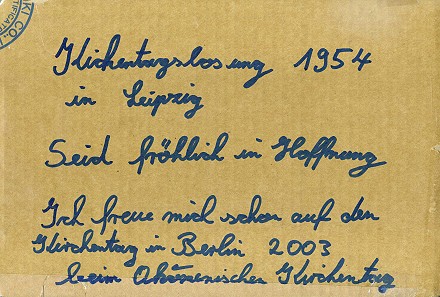 KI CO.,
TIFICAT
Kirchentagslosung 1954
in Leipzig
Seid fröhlich in Hoffnung
Ich freue mich schon auf den
Kirchentag in Berlin 2003
beim Ökumenischen Kirchentag